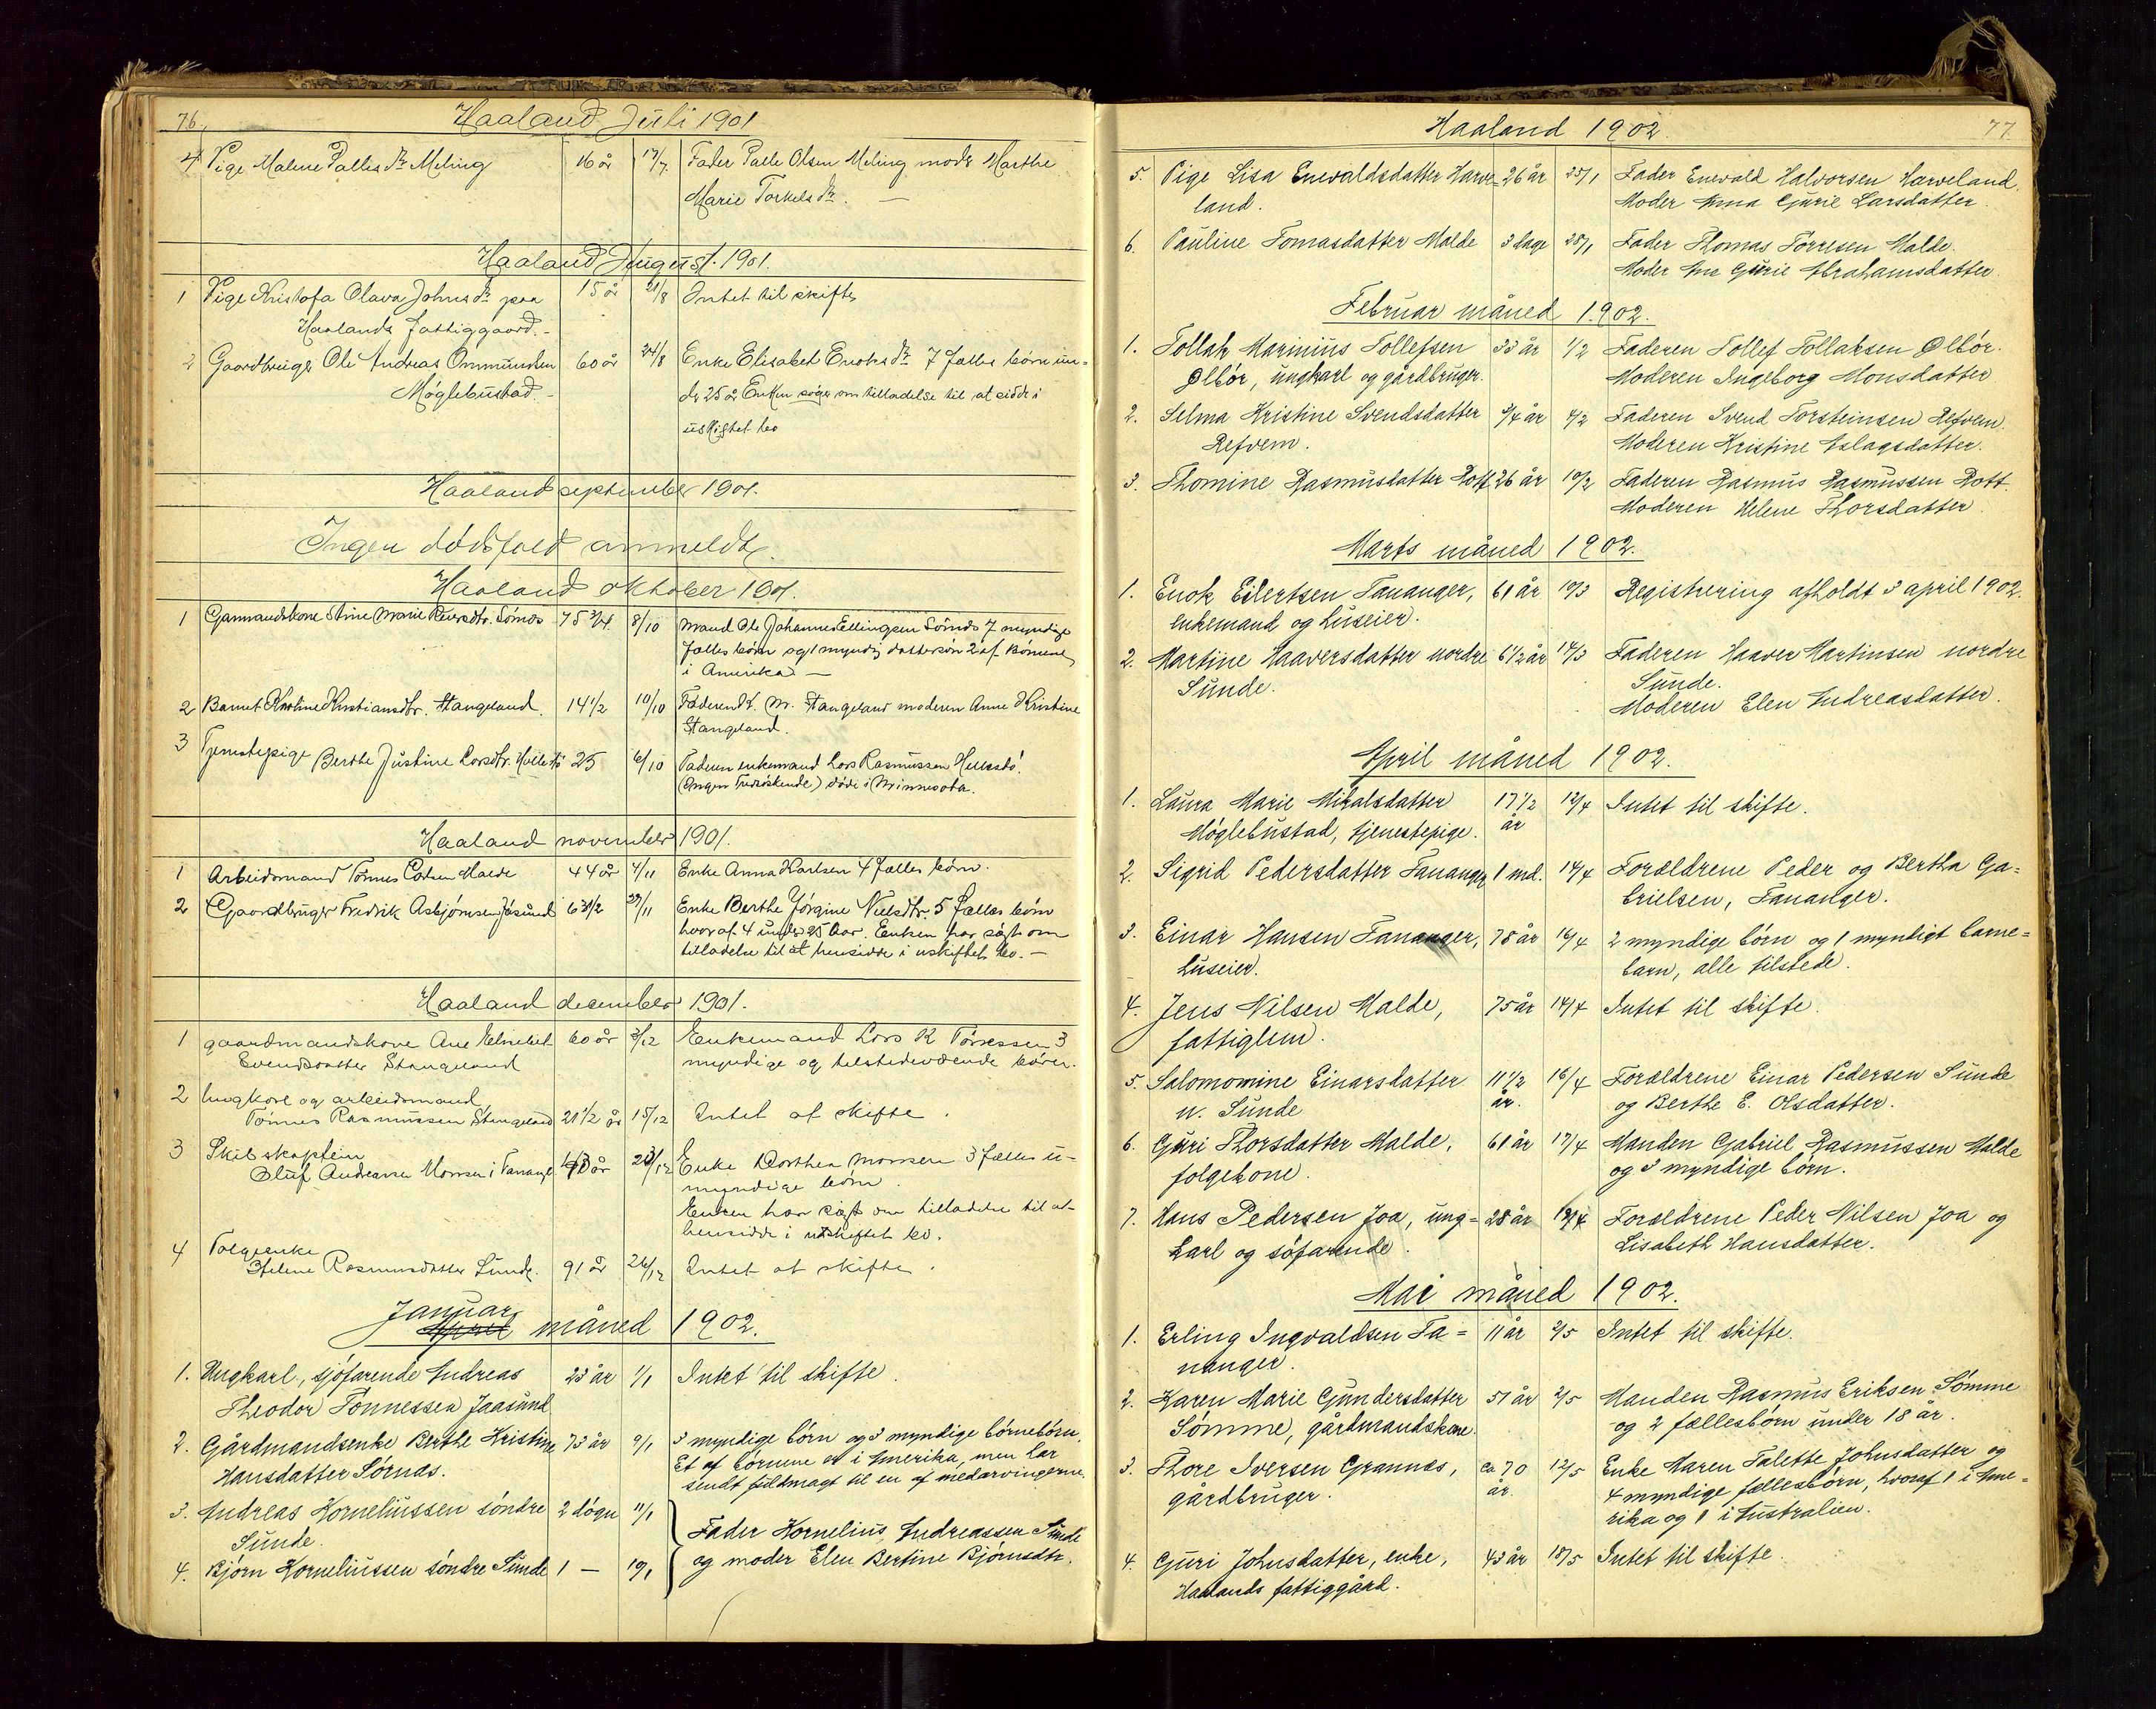 76.
Haaland Juli 1901
4 Pige Malene Palles Dr. Meling 16 år 17/7 Fader Palle Olsen Meling modr Marthe
Marie Torkels Dr. —
Haaland August. 1901.
1 Pige Kristofa Olava Johns Dr. paa 15 år 21/8 Intet til skifte
Haalands fattiggaard.-
2 Gaardbruger Ole Andreas Ommundsen 60 år 24/8 Enke Elisabet Enoks Dr. 7 fælles børn un-
Møglebustad.- der 25 år Enken søger om tilladelse til at sidde i
uskiftet bo
Haaland september 1901.
Ingen dødsfald anmeldt.
Haaland oktober 1901.
1 Gaarmandskone Stine Marie Sømds 75 3/4 8/10 Mand Ole Johannes Ellingsen Sømds 7 myndige
fælles børn og 1 myndig dattersøn 2 af børnene
i Amerika —
2 Barnet Karoline Kristiansdtr. Stangeland. 14 1/2 10/10 Faderen K. M. Stangeland moderen Anne Kristine
Stangeland.
3 Tjenestepige Berthe Justine Larsdtr. 25 6/10 Faderen enkemand Lars Rasmussen
(Ingen ) døde i Minnesota.
Haaland november 1901.
1 Arbeidsmand Tønnes Malde 44 år 4/11 Enke Anna Karlsen 4 fælles børn.
2 Gaardbruger Fredrik Asbjørnsen Jåsund 63 1/2 27/11 Enke Berthe Jørgine Nielsdtr. 5 fælles børn
hvoraf 4 under 25 aar. Enken har søgt om
tilladelse til at hensidde i uskiftet bo. —
Haaland december 1901.
1 gaardmandskone Ane Elisebet 60 år 3/12 Enkemand Lars K Tørressen 3
Svendsdatter Stangeland myndige og tilstedeværende børn.
2 Ungkarl og arbeidsmand
Tønnes Rasmussen Stangeland 21 1/2 år 15/12 Intet at skifte.
3 Skibskaptein
Oluf Andreas Monsen i Tananger år 23/12 Enke Dorthea Monsen 3 fælles u-
myndige børn.
Enken har søgt om tilladelse til at
hensidde i uskiftet bo.
4 Folgeenke
Helene Rasmusdatter Sunde. 91 år 26/12 Intet at skifte.
Januar
April måned 1902.
1. Ungkarl, sjøfarende Andreas 23 år 1/1 Intet til skifte.
Theodor Tønnessen Jaasund
2. Gårdmandsenke Berthe Kristine 73 år 9/1 3 myndige børn og 3 myndige børnebørn.
Hansdatter Sørnæs. Et af børnene er i Amerika, men har
sendt fuldmagt til en af medarvingerne.
3. Andreas Korneliussen søndre 2 døgn 11/1
Sunde. Fader Kornelius Andreassen Sunde
4. Bjørn Korneliussen søndre Sunde 1 — 10/1 og moder Elen Bertine Bjørnsdtr.
77.
Haaland 1902.
5. Pige Lisa Enevaldsdatter Harve- 26 år 25/1 Fader Enevald Halvorsen Harveland.
land. Moder Anna Gurie Larsdatter.
6. Pauline Tomasdatter Malde 3 dage 28/1 Fader Thomas Tørresen Malde.
Moder Ane Gurie Abrahamsdatter.
Februar måned 1902.
1. Tollak Marinius Tollefsen 33 år 1/2 Faderen Tollef Tollaksen Ølbør.
Ølbør, ungkarl og gårdbruger. Moderen Ingeborg Monsdatter
2. Selma Kristine Svendsdatter 3/4 år 4/2 Faderen Svend Torsteinsen Refvem.
Refvem. Moderen Kristine Aslagsdatter.
3. Thomine Rasmusdatter Rott 26 år 10/2 Faderen Rasmus Rasmussen Rott.
Moderen Helene Thorsdatter.
Marts måned 1902.
1. Enok Eilertsen Tananger, 61 år 10/3 Registrering afholdt 3 april 1902.
enkemand og huseier.
2. Martine Haaversdatter nordre 6 1/2 år 14/3 Faderen Haaver Martinsen nordre
Sunde. Sunde.
Moderen Elen Andreasdatter.
April måned 1902.
1. Laura Marie Mikalsdatter 17 1/2 12/4 Intet til skifte.
Møglebustad, tjenestepige. år
2. Sigrid Pedersdatter Tananger 1 md. 14/4 Forældrene Peder og Bertha Ga-
brielsen, Tananger.
3. Einar Hansen Tananger, 78 år 14/4 2 myndige børn og 1 myndigt barne=
huseier. barn, alle tilstede.
4. Jens Nilsen Malde, 75 år 14/4 Intet til skifte.
fattiglem.
5. Salomomine Einarsdatter 11 1/2 16/4 Forældrene Einar Pedersen Sunde
n. Sunde år. og Berthe E. Olsdatter.
6. Guri Thorsdatter Malde, 61 år 17/4 Manden Gabriel Rasmussen Malde
folgekone. og 3 myndige børn.
7. Hans Pedersen Joa, ung= 28 år 19/4 Forældrene Peder Nilsen Joa og
karl og søfarende. Lisabeth Hansdatter.
Mai måned 1902.
1. Erling Ingvaldsen Ta= 11 år 2/5 Intet til skifte.
nanger.
2. Karen Marie Gundersdatter 51 år 2/5 Manden Rasmus Eriksen Sømme
Sømme, gårdmandskone. og 2 fællesbørn under 18 år.
3. Thore Iversen Grannæs, ca 70 12/5 Enke Maren Talette Johnsdatter og
gårdbruger. år. 4 myndige fællesbørn, hvoraf 1 i Ame=
rika og 1 i Australien.
4. Guri Johnsdatter, enke, 43 år 18/5 Intet til skifte.
Haalands fattiggård.